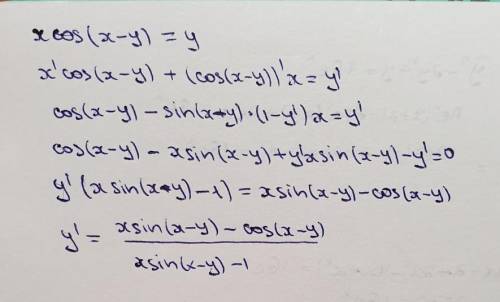 x cos(x-y) = y
x' cos(x-y) + (cos(x-y))' x = y'
cos(x-y) - sin(x-y)·(1-y') x = y'
cos(x-y) - x sin(x-y) + y' x sin(x-y) - y' = 0
y' (x sin(x-y) - 1) = x sin(x-y) - cos(x-y)
y' = x sin(x-y) - cos(x-y) / x sin(x-y) - 1